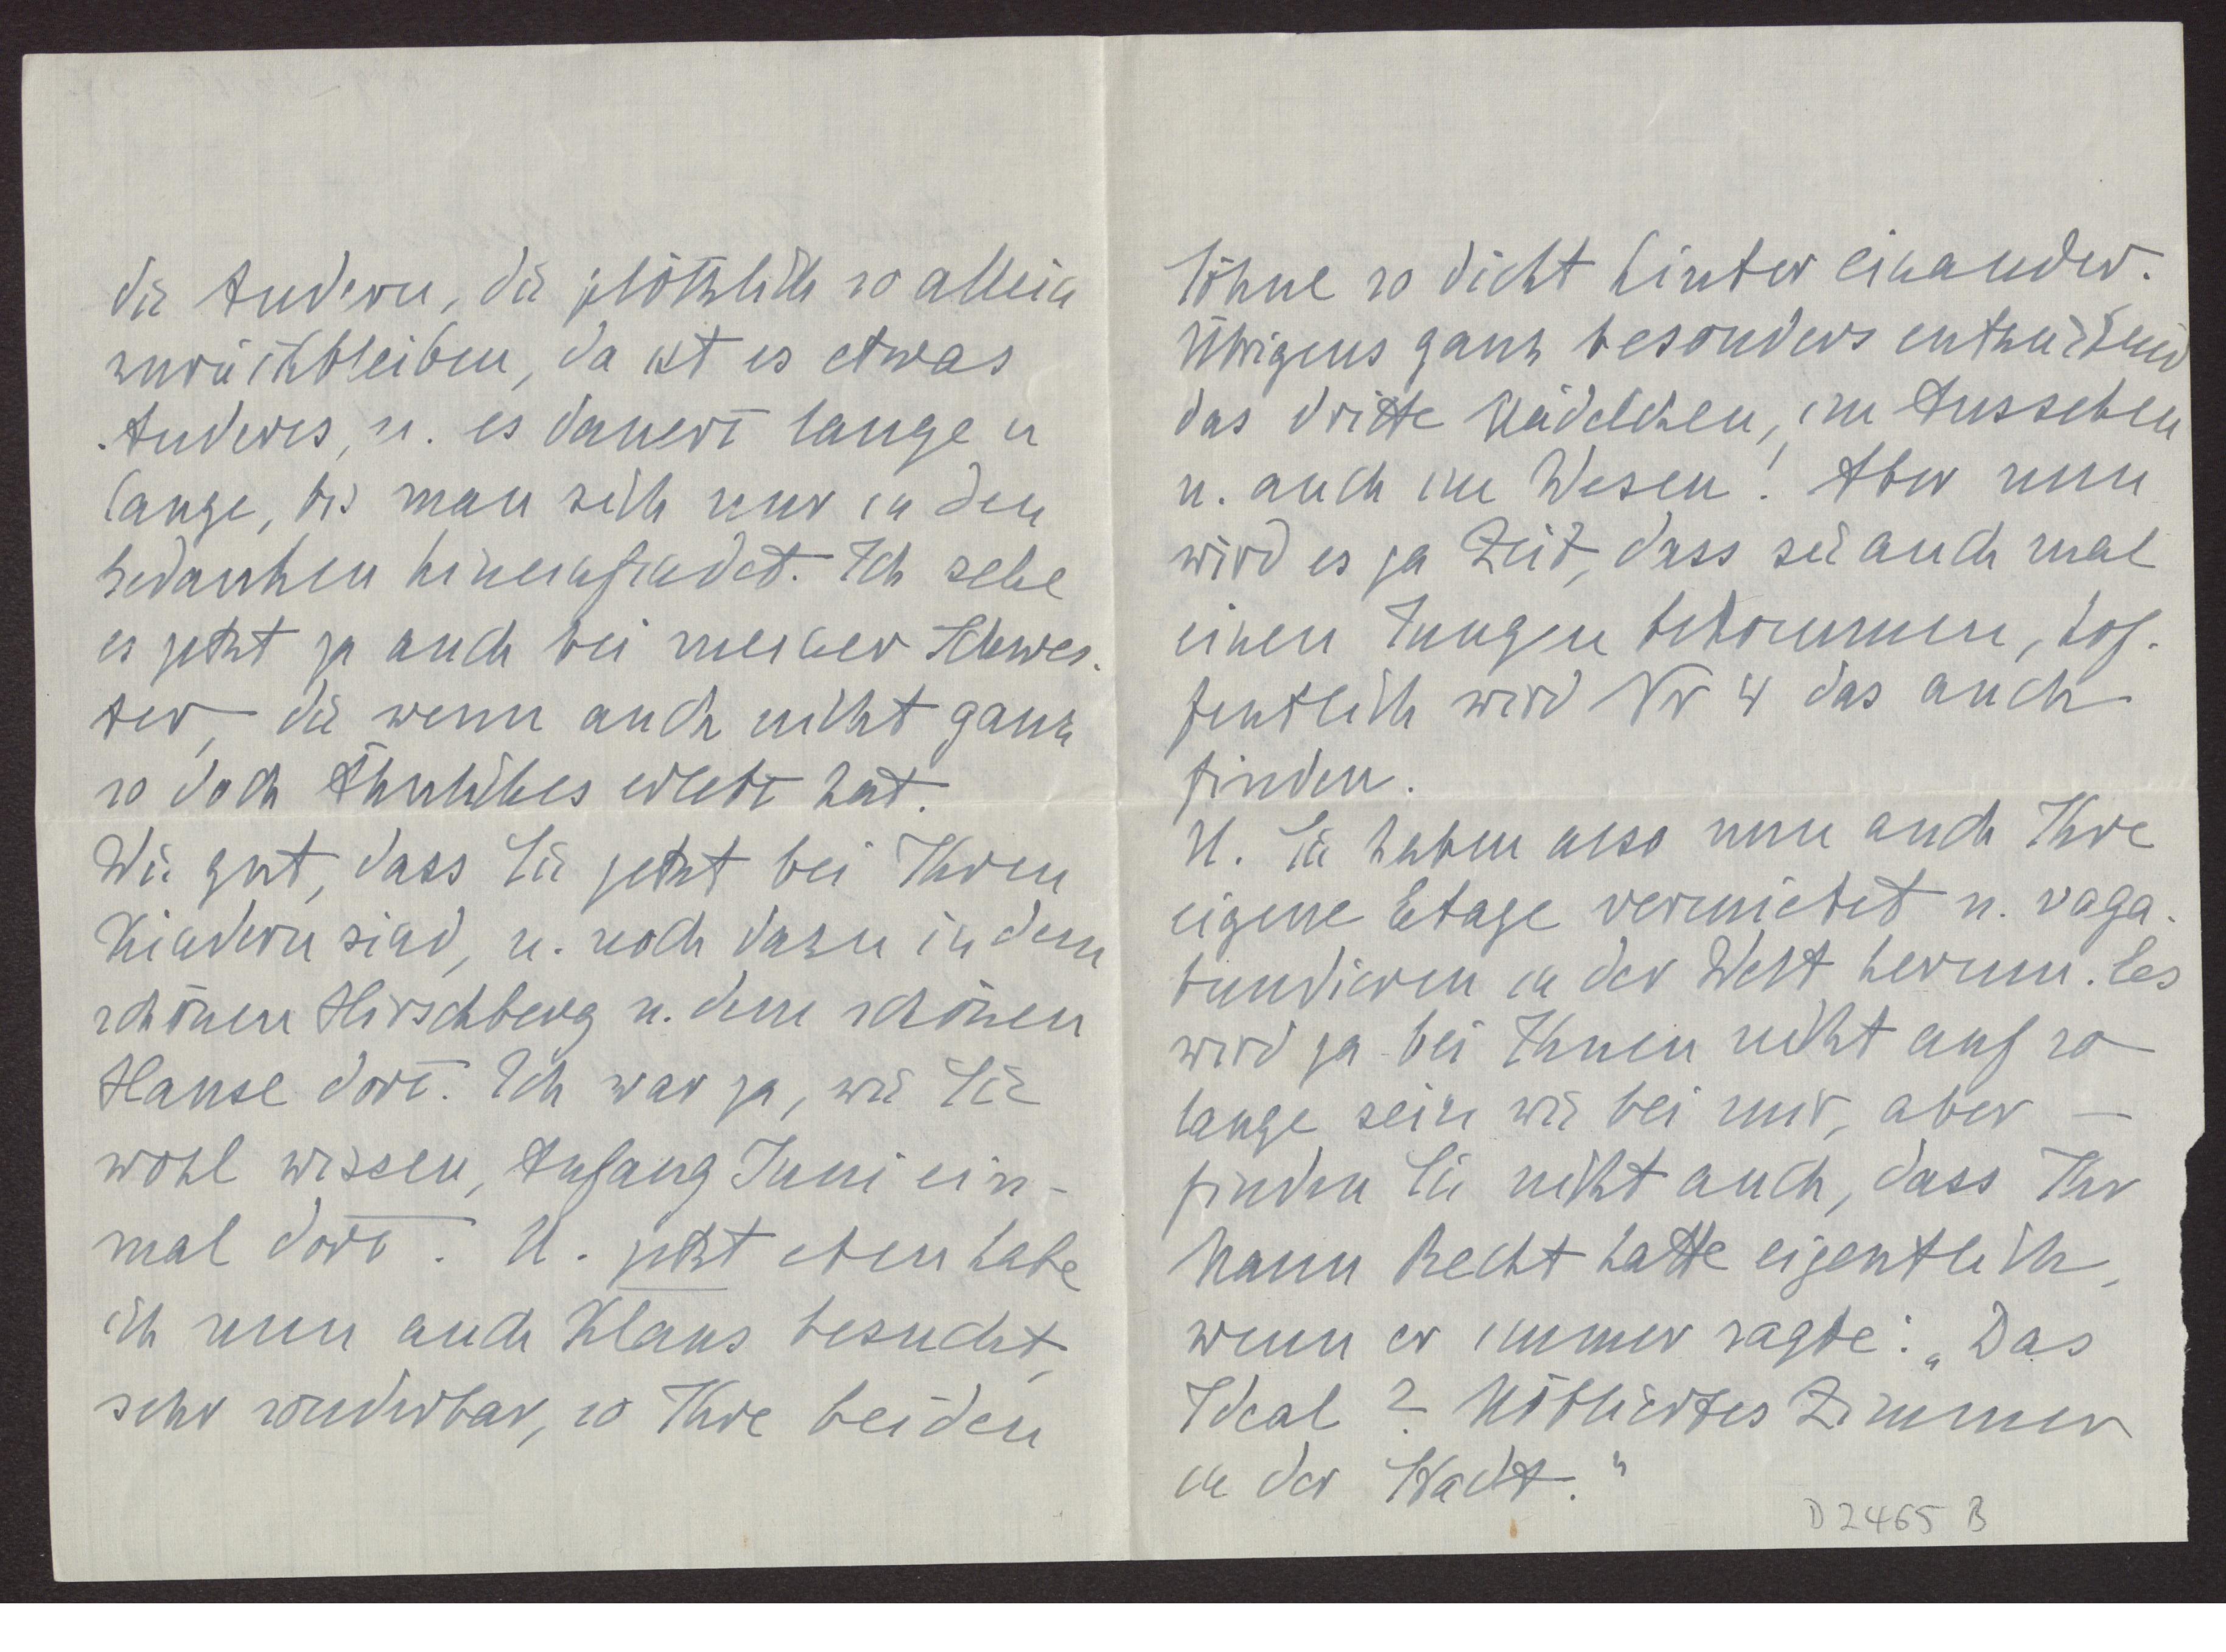 die Andern, die plötzlich so allein
zurückbleiben, da ist es etwas
Anderes, u. es dauert lange u
lange, bis man sich nur in den
Gedanken hineinfindet. Ich sehe
es jetzt ja auch bei meiner Schwes-
ter, die wenn auch nicht ganz
so doch Ähnliches erlebt hat.
Wie gut, dass Sie jetzt bei Ihren
Kindern sind, u. noch dazu in dem
schönen Hirschberg u. dem schönen
Hause dort. Ich war ja, wie Sie
wohl wissen, Anfang Juni ein-
mal dort. U. jetzt eben habe
ich nun auch Klaus besucht,
sehr sonderbar, so Ihre beiden
Söhne so dicht hinter einander.
Übrigens ganz besonders entzückend
das dritte Mädelchen, im Aussehen
u. auch im Wesen! Aber nun
wird es ja Zeit, dass sie auch mal
einen Jungen bekommen, hof-
fentlich wird Nr 4 das auch
finden.
U. Sie haben also nun auch Ihre
eigene Etage vermietet u. vaga-
bundieren in der Welt herum. Es
wird ja bei Ihnen nicht auf so
lange sein wie bei mir, aber —
finden Sie nicht auch, dass Ihr
Mann Recht hatte eigentlich,
wenn er immer sagte: „Das
Ideal? Möbliertes Zimmer
in der Stadt."
D 2465 B